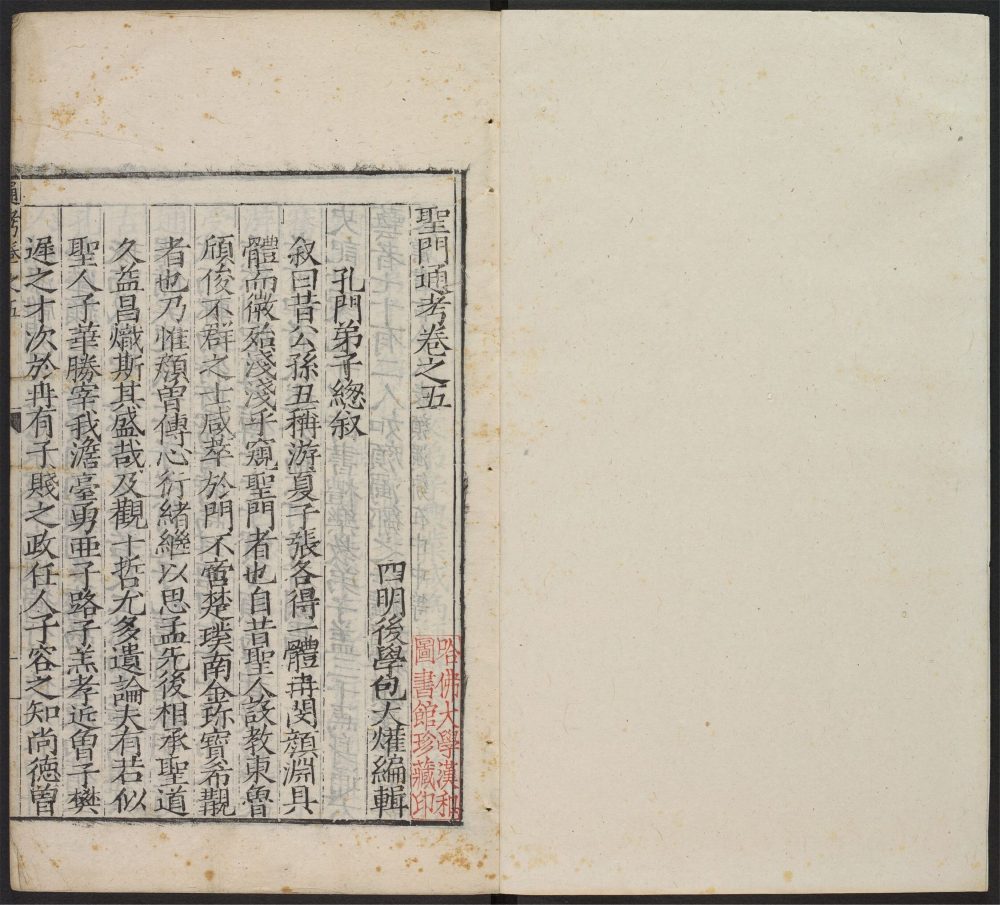 聖門通考卷之五
哈佛大學漢和
圖書館珍藏印
四明後學包大爟編輯
孔門弟子緫叙
叙曰昔公孫丑稱游夏子張各得一體冉閔顔淵具
體而微殆淺淺乎窺聖門者也自昔聖人設教東魯
頎俊不群之士咸萃於門不啻楚璞南金珎寳希覯
者也乃惟顔曾傳心衍緒繼以思孟先後相承聖道
久益昌熾斯其盛哉及觀十哲尤多遺論夫有若似
聖人子華勝宰我澹臺勇亜子路子羔孝近曽子樊
遲之才次於冉有子賤之政任人子容之知尚德曽
通考卷之五